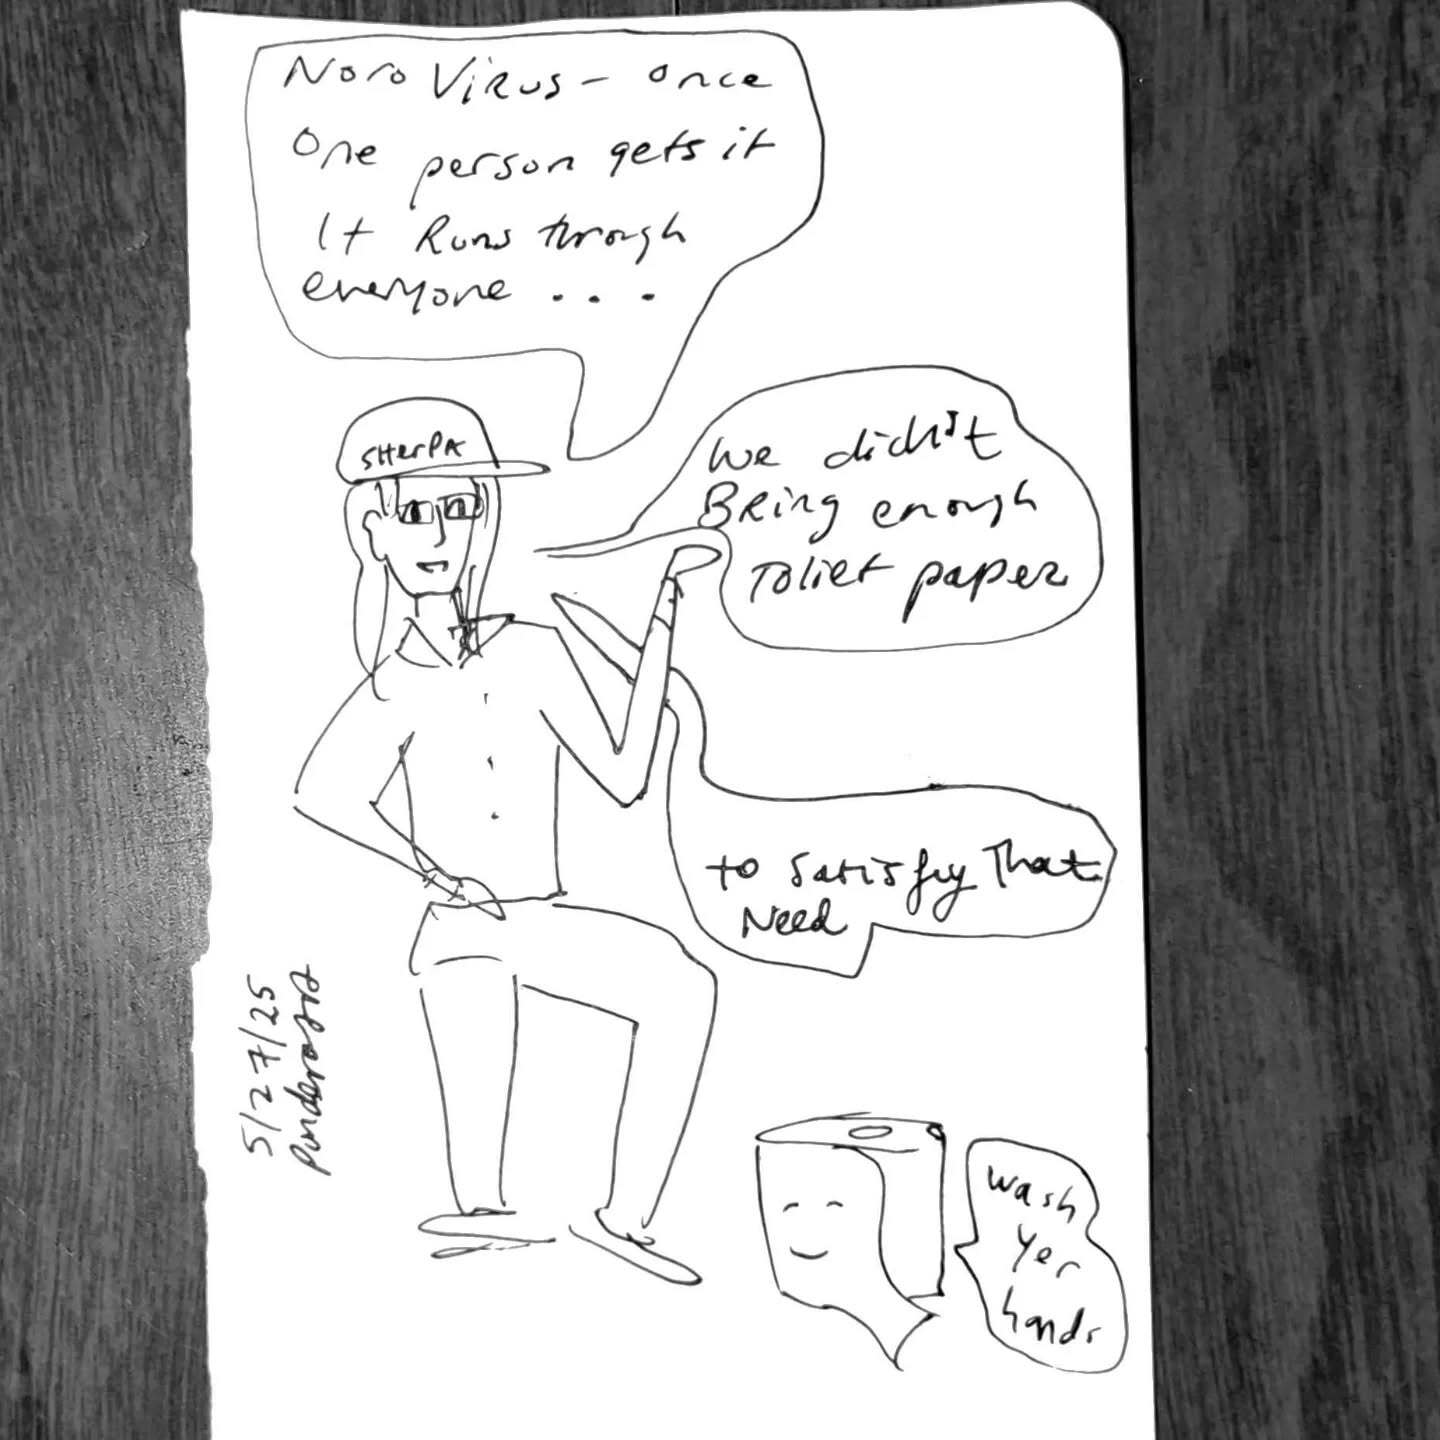 Noro Virus - once
one person gets it
It Runs through
everyone ...
SHerPA
We didn't
Bring enough
Toliet paper
to satisfy That
Need
5/27/25
Ponderosa
wash
yer
hands